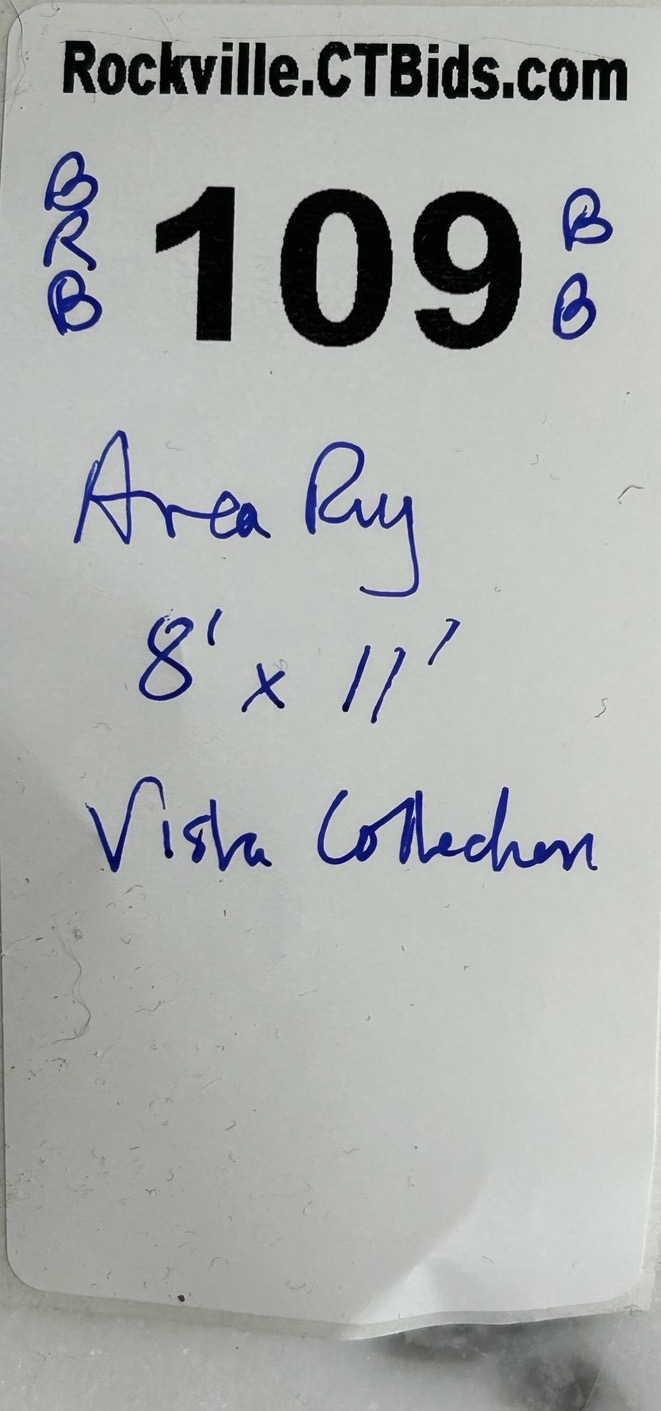 Rockville.CTBids.com
B
R
B
109
B
B
Area Rug
8' x 11'
Vista Collection